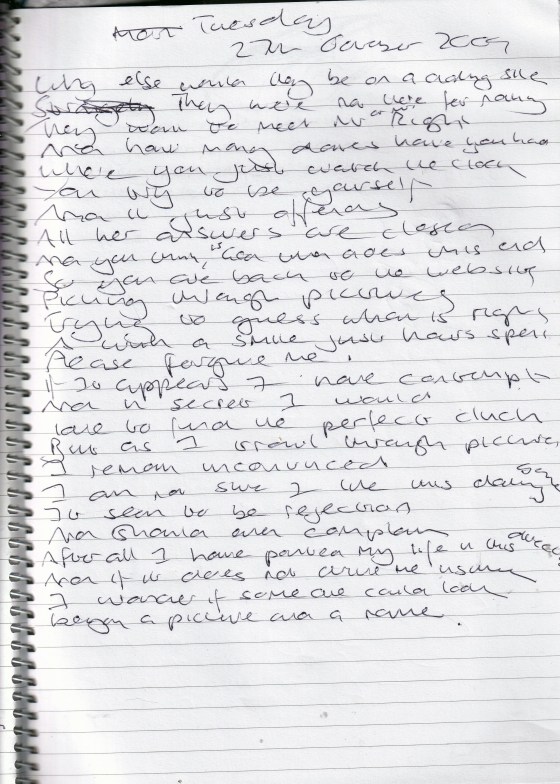 Mon Tuesday
27th October 2009
Why else would they be on a dating site
They were not here for
They want to meet Mr or Mrs Right
And how many dates have you had
Where you just watch the clock
You try to be yourself
And it just offends
All her answers are closed
And you think, is God when does this end
So you are back to the website
Picking through pictures
Trying to guess what is right
A with a smile just hours spent
Please forgive me.
If it appears I have contempt
And in secret I would
love to find the perfect clutch
But as I trawl through pictures
I remain unconvinced
I am not sure I like this dating
It seem to be rejection
And should one complain
After all I have pointed my life in this direction
And if it does not drive me insane
I wonder if some one could look
beyon a picture and a name.